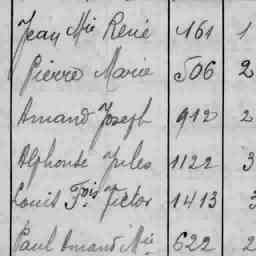 Jean Mie René 161 1
Pierre Marie 506 2
Amand Joseph 912 2
Alphonse Jules 1122 3
Louis Fois Victor 1413 3
Paul Amand Mie 622 2